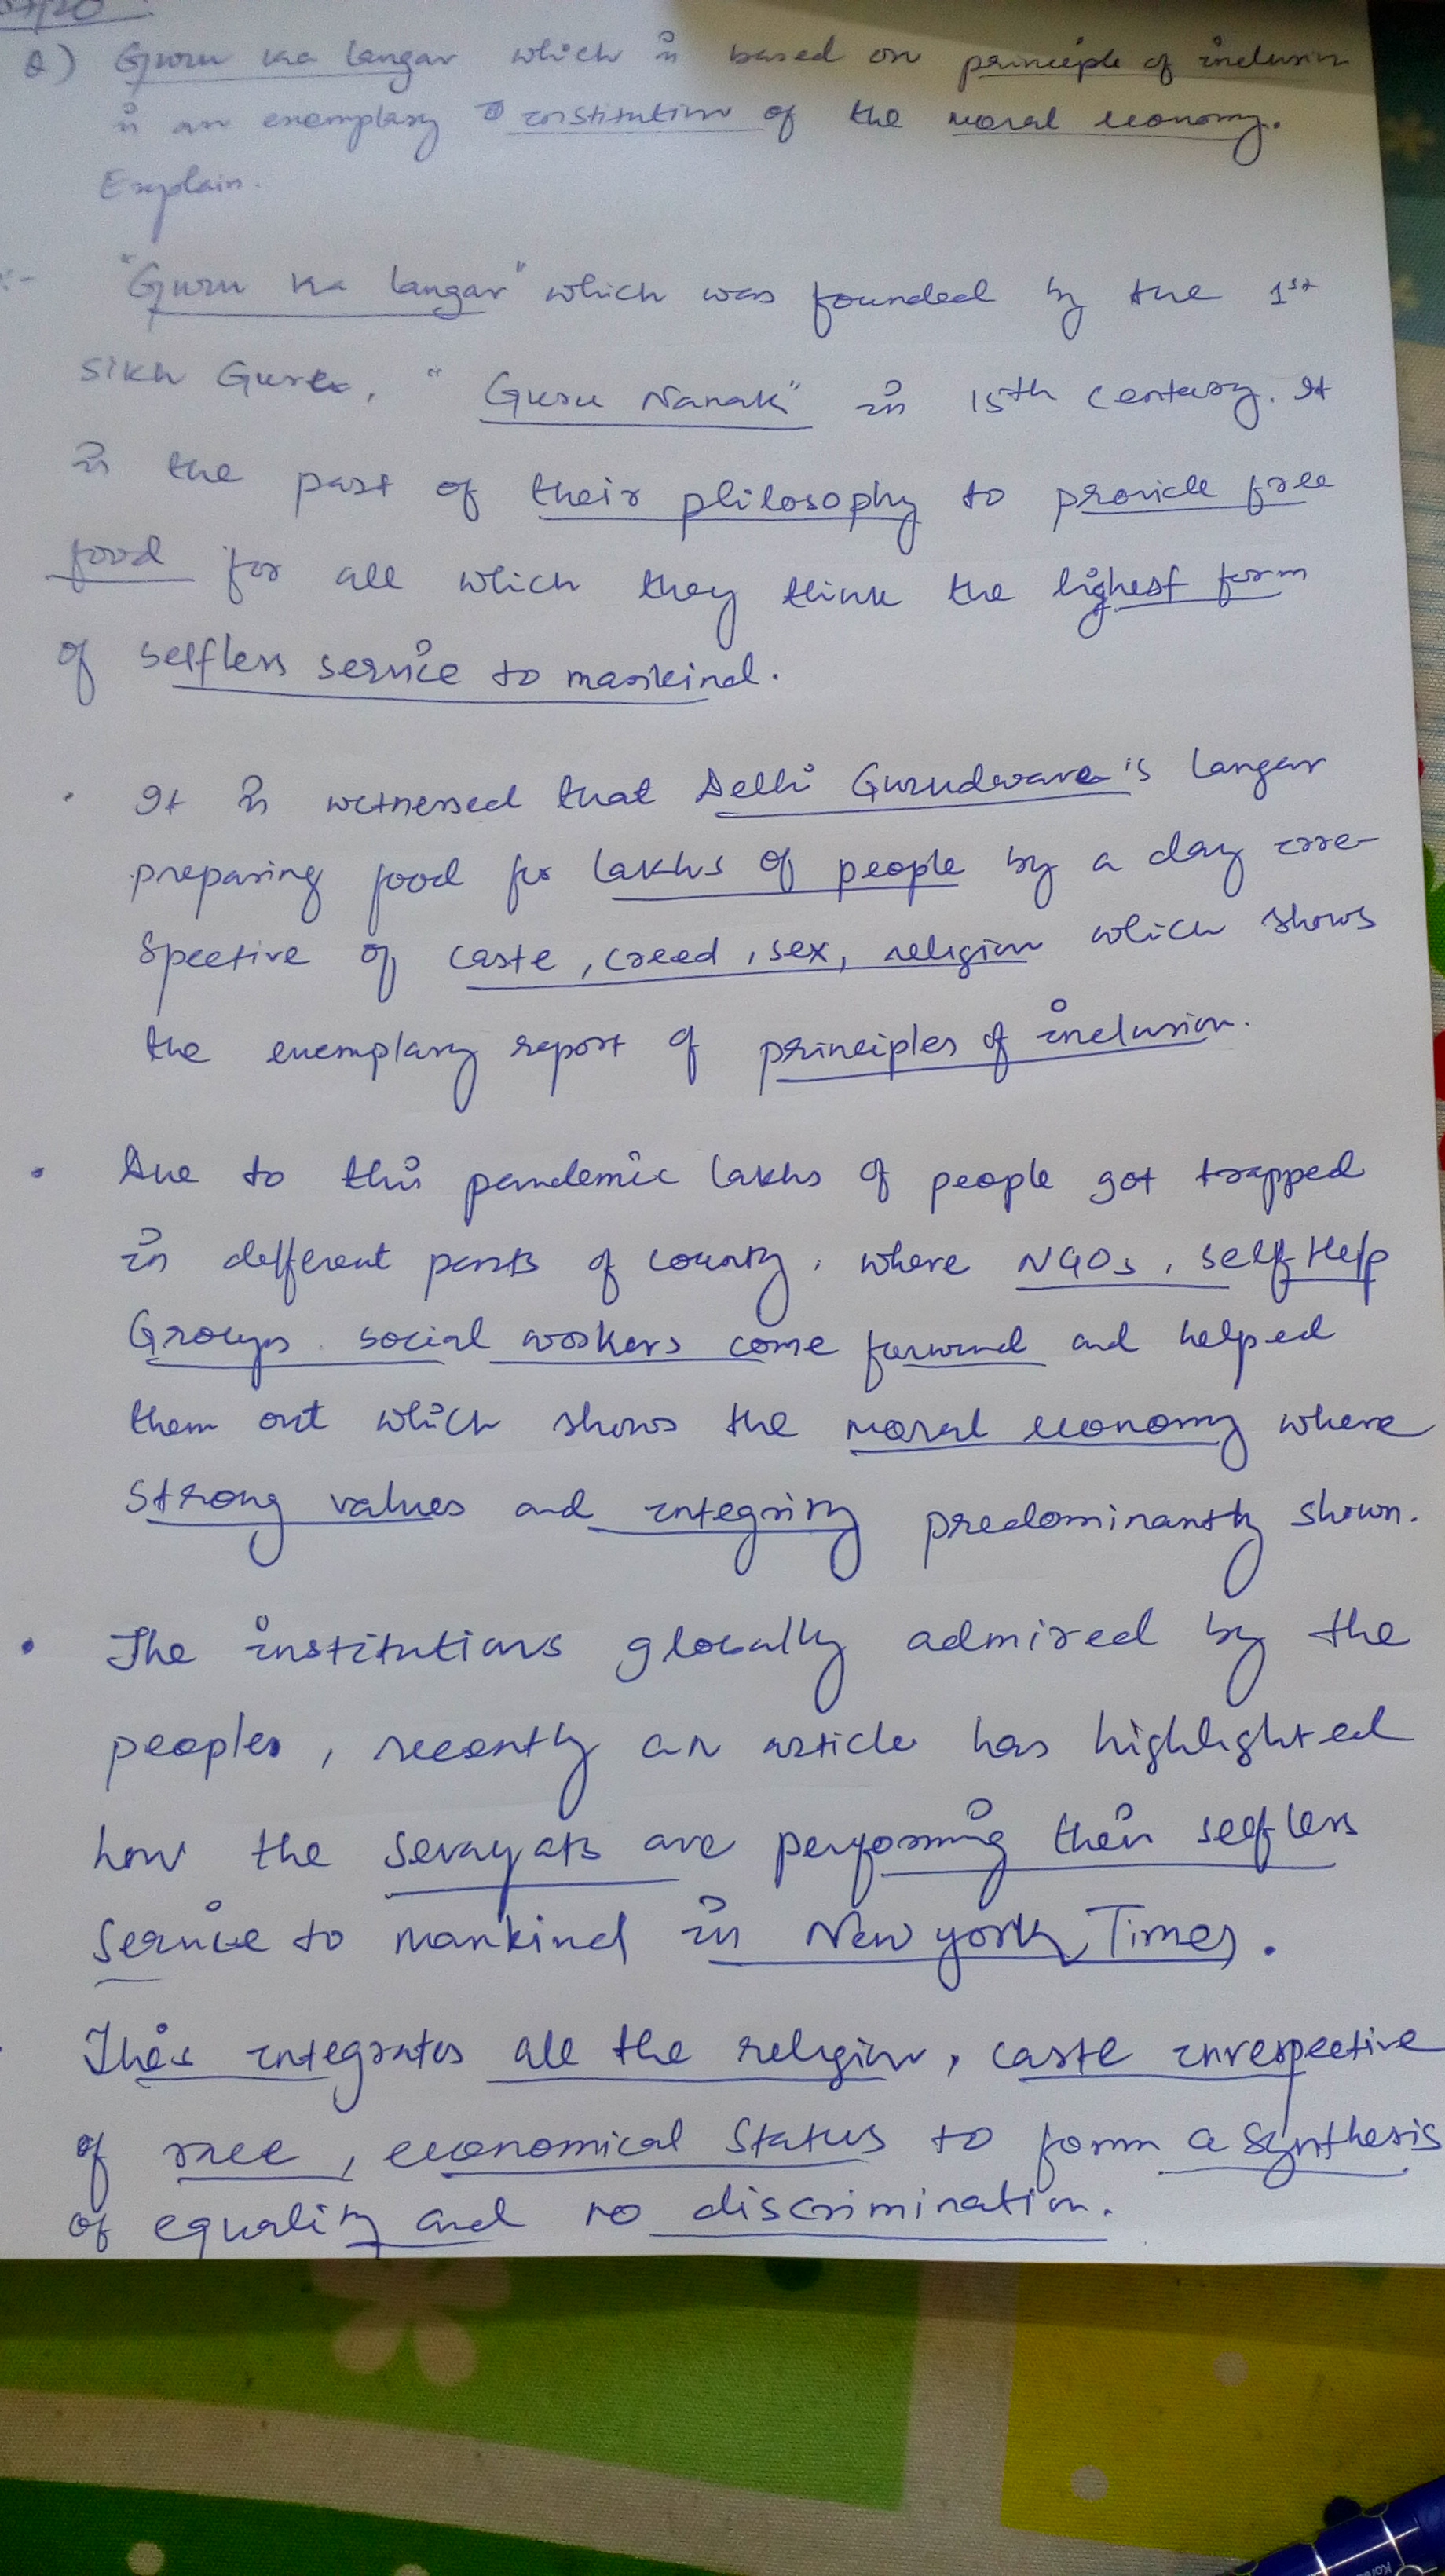 Q) Guru ka langar which is based on principle of inclusion
is an exemplary institution of the moral economy.
Explain.
:- "Guru ka langar" which was founded by the 1st
Sikh Guru, "Guru Nanak" in 15th century. It
is the part of their philosophy to provide free
food for all which they think the highest form
of selfless service to mankind.
· It is witnessed that Delhi Gurudwara's langar
preparing food for lakhs of people by a day irre-
spective of caste, creed, sex, religion which shows
the exemplary report of principles of inclusion.
· Due to this pandemic lakhs of people got trapped
in different parts of country, where NGOs, self Help
Groups social workers come forward and helped
them out which shows the moral economy where
strong values and integrity predominantly shown.
· The institutions globally admired by the
peoples, recently an article has highlighted
how the sevayats are performing their selfless
service to mankind in New york Times.
· This integrates all the religion, caste irrespective
of race, economical status to form a synthesis
of equality and no discrimination.